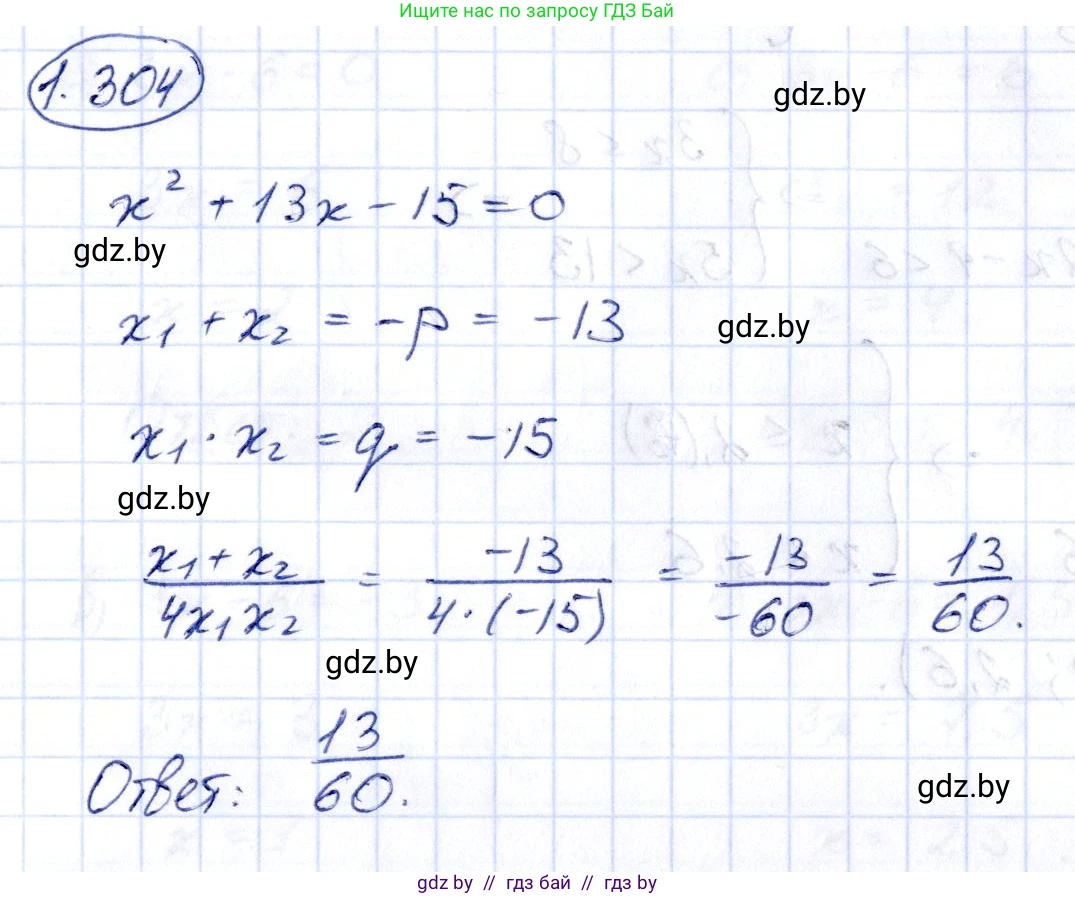 Ищите нас по запросу ГДЗ Бай
1.304
gdz.by
x² + 13x - 15 = 0
gdz.by
x₁ + x₂ = -p = -13
gdz.by
x₁ · x₂ = q = -15
gdz.by
(x₁ + x₂)/(4x₁x₂) = -13/(4·(-15)) = -13/-60 = 13/60.
gdz.by
Ответ: 13/60.
gdz.by
gdz by // гдз бай // гдз by